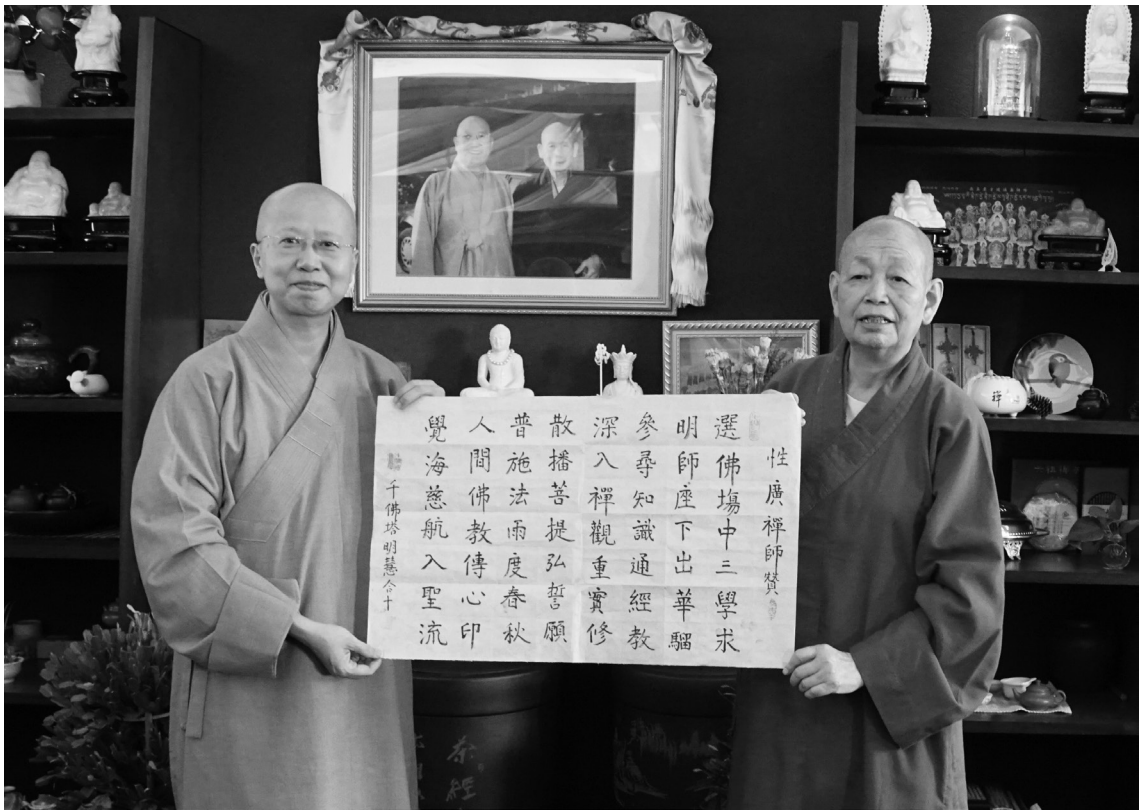 性廣禪師贊
選佛場中三學求
明師座下出華騮
參尋知識通經教
深入禪觀重實修
散播菩提弘誓願
普施法雨度春秋
人間佛教傳心印
覺海慈航入聖流
千佛塔明慧合十
祥
茶經